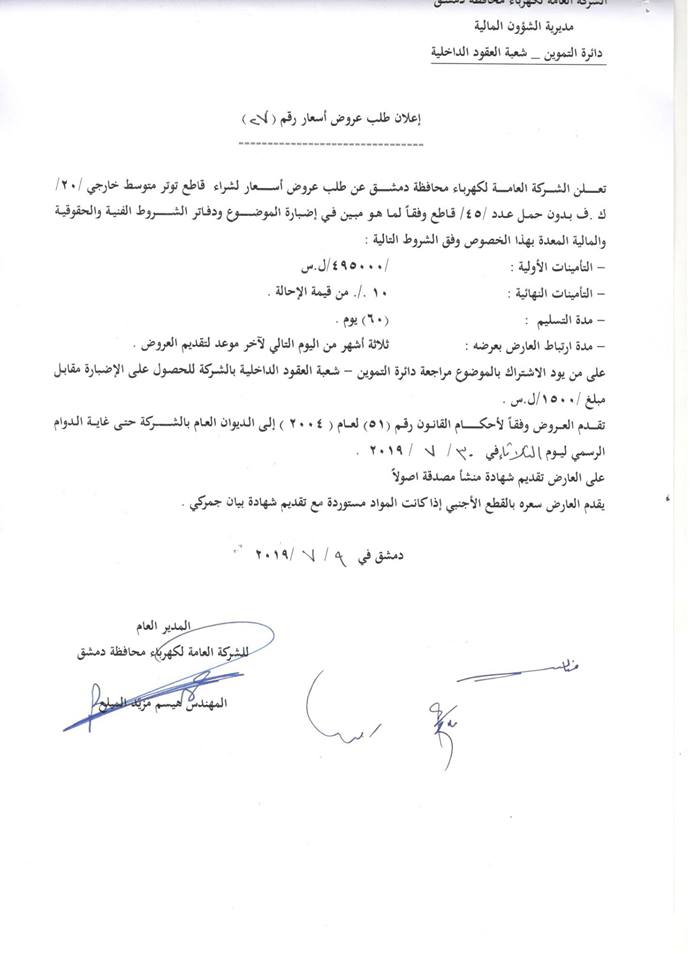 الشركة العامة لكهرباء محافظة دمشق
مديرية الشؤون المالية
دائرة التموين _ شعبة العقود الداخلية
إعلان طلب عروض أسعار رقم ( )
--------------------------------
تعـلن الشركة العامـة لكهرباء محافظة دمشـق عن طلب عروض أسـعار لشراء قاطع توتر متوسط خارجي /٢٠/
ك .ف بـدون حمـل عـدد /٤٥/ قـاطع وفقـاً لمـا هـو مبين في إضبـارة الموضـوع ودفـاتر الشـروط الفنية والحقوقية
والمالية المعدة بهذا الخصوص وفق الشروط التالية :
- التأمينات الأولية : /٤٩٥٠٠٠/ل.س
- التأمينات النهائية : ١٠ ./. من قيمة الإحالة .
- مدة التسليم : (٦٠) يوم .
- مدة ارتباط العارض بعرضه : ثلاثة أشهر من اليوم التالي لآخر موعد لتقديم العروض .
على من يود الاشتراك بالموضوع مراجعة دائرة التموين – شعبة العقود الداخلية بالشركة للحصول على الإضبارة مقابل
مبلغ /١٥٠٠/ل.س .
تقـدم العـروض وفقـاً لأحكـام القانون رقـم (٥١) لعـام ( ٢٠٠٤ ) إلى الديوان العـام بالشـركة حتى غايـة الدوام
الرسمي ليـوم الثلاثاء في ٣٠ / ٧ / ٢٠١٩ .
على العارض تقديم شهادة منشأ مصدقة اصولاً
يقدم العارض سعره بالقطع الأجنبي إذا كانت المواد مستوردة مع تقديم شهادة بيان جمركي .
دمشق في ٩ / ٧ /٢٠١٩
المدير العام
للشركة العامة لكهرباء محافظة دمشق
المهندس هيسم مزيد الميلع